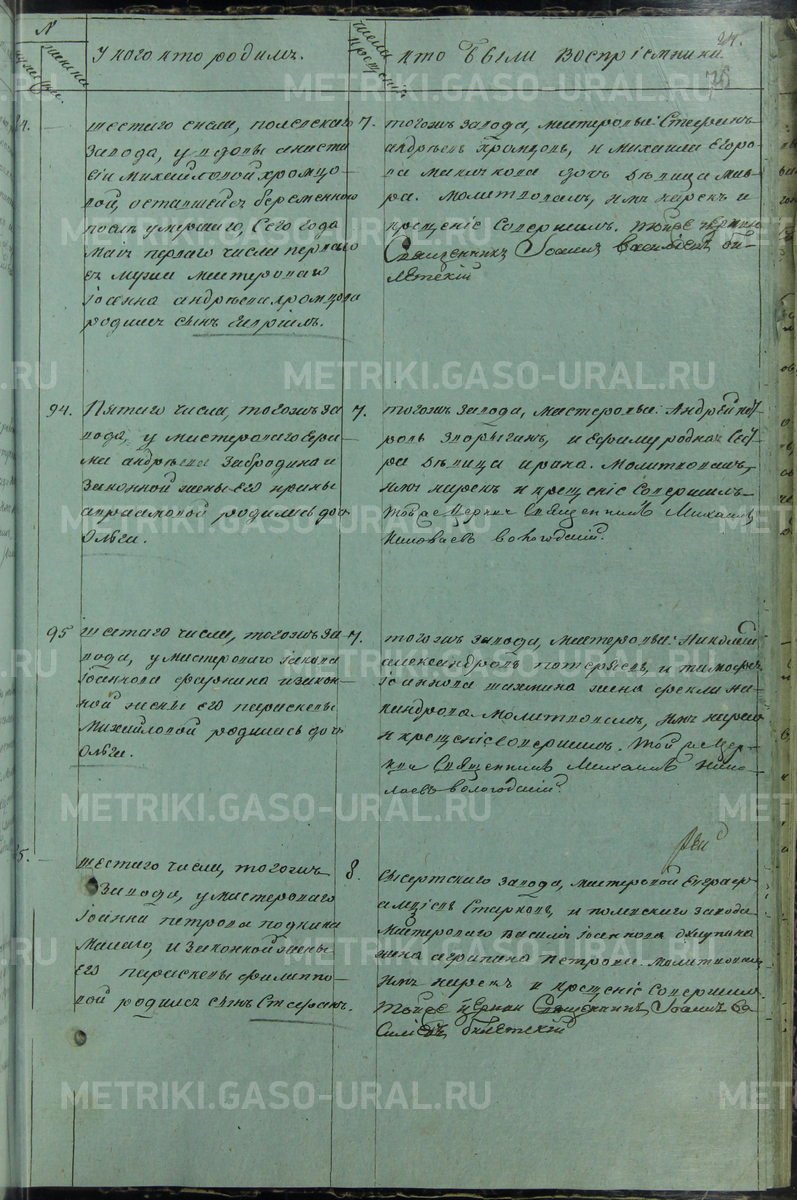 N
У кого кто родилъ.
числа крещенiя
Кто были восприемники.
24.
шестаго числа, полевскаго 7.
завода, у вдовы аниста
сiи михайловой хромцо
вой, оставшейсъ беременною
послъ умершаго, сего года
маiя перваго числа перваго
ея мужа мастероваго
iоанна андрѣева хромцова
родился сынъ Гаврiилъ.
тогожъ завода, мастеровые: Стефанъ
андрѣевъ хромцовъ, и михаила Егоро
ва дочь дѣвица мав
ра. молитвовалъ, имя нарекъ и
крещенiе совершилъ. тойже церкви
Священникъ Iоаннъ василiевъ би
лѣтскiй
94. Пятаго числа, тогожъ за 7.
вода, у мастероваго Ефи
ма андрѣева Забродина и
законной жены его ирины
авраамовой родилась дочь
Ольга.
тогожъ завода, мастеровые: Андрей пет
ровъ зюрыганъ, и Ефиму родная Сест
ра дѣвица ирина. молитвовалъ,
имя нарекъ и крещенiе совершилъ
тойже церкви Священникъ Михаилъ
Николаевъ вологодскiй.
95 шестаго числа, тогожъ за 7.
вода, у мастероваго iакова
iоаннова фарнина и закон
ной жены его параскевы
Михайловой родилась дочь
Ольга.
тогожъ завода, мастеровые: Николай
александровъ и тимофея
iоаннова жена фекла ни
кандрова. молитвовалъ, имя нарекъ
и крещенiе совершилъ. той же цер
кви Священникъ Михаилъ Нико
лаевъ вологодскiй.
шестаго числа, тогожъ 8.
Завода, у мастероваго
iоанна петрова подкина
малаго, и законной жены
его параскевы филиппо
вой родился сынъ Стефанъ.
сысертскаго завода, мастеровой Евграфъ
Старковъ, и полевскаго завода
мастероваго василiя iоаннова
жена агрипина петрова. молитвовалъ,
имя нарекъ и крещенiе совершилъ.
тойже церкви Священникъ Iоаннъ ва
силiевъ билѣтскiй
METRIKI.GASO-URAL.RU